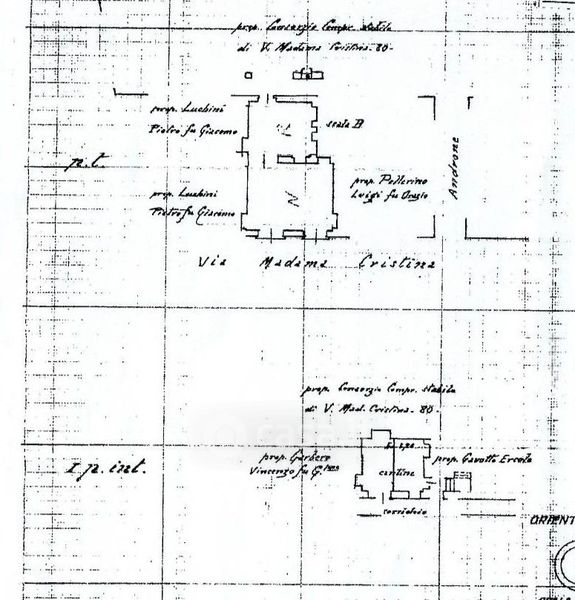 prop. Consorzio Compr. stabile
di V. Madama Cristina - 80 -
prop. Luchini
Pietro fu Giacomo
scala B
N
p.t.
prop. Luchini
Pietro fu Giacomo
N
prop. Pellerino
Luigi fu Orazio
Androne
Via Madama Cristina
prop. Consorzio Compr. stabile
di V. Mad. Cristina - 80 -
I p. int.
prop. Garbero
Vincenzo fu G.
cantina
prop. Gavotto Ercole
corridoio
ORIENT